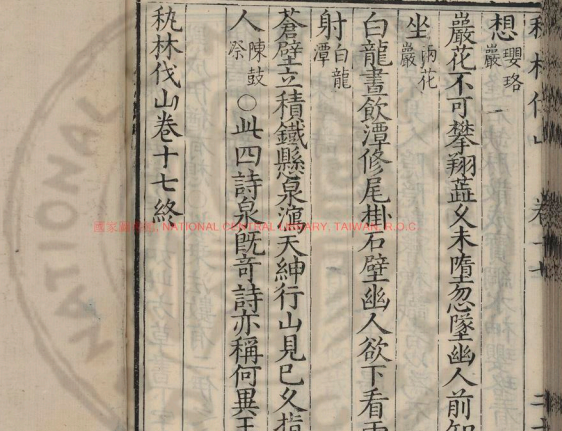 秇林伐山 卷十七
想 瓔珞巖
巖花不可攀翔蕋久未墮忽墜幽人前知
坐 雨花巖
白龍晝飲潭修尾掛石壁幽人欲下看雨
射 白龍潭
蒼壁立積鐵懸泉瀉天紳行山見已久指
人 陳鼓 ○此四詩泉旣奇詩亦稱何異王
秇林伐山卷十七終
國家圖書館, NATIONAL CENTRAL LIBRARY, TAIWAN R.O.C.